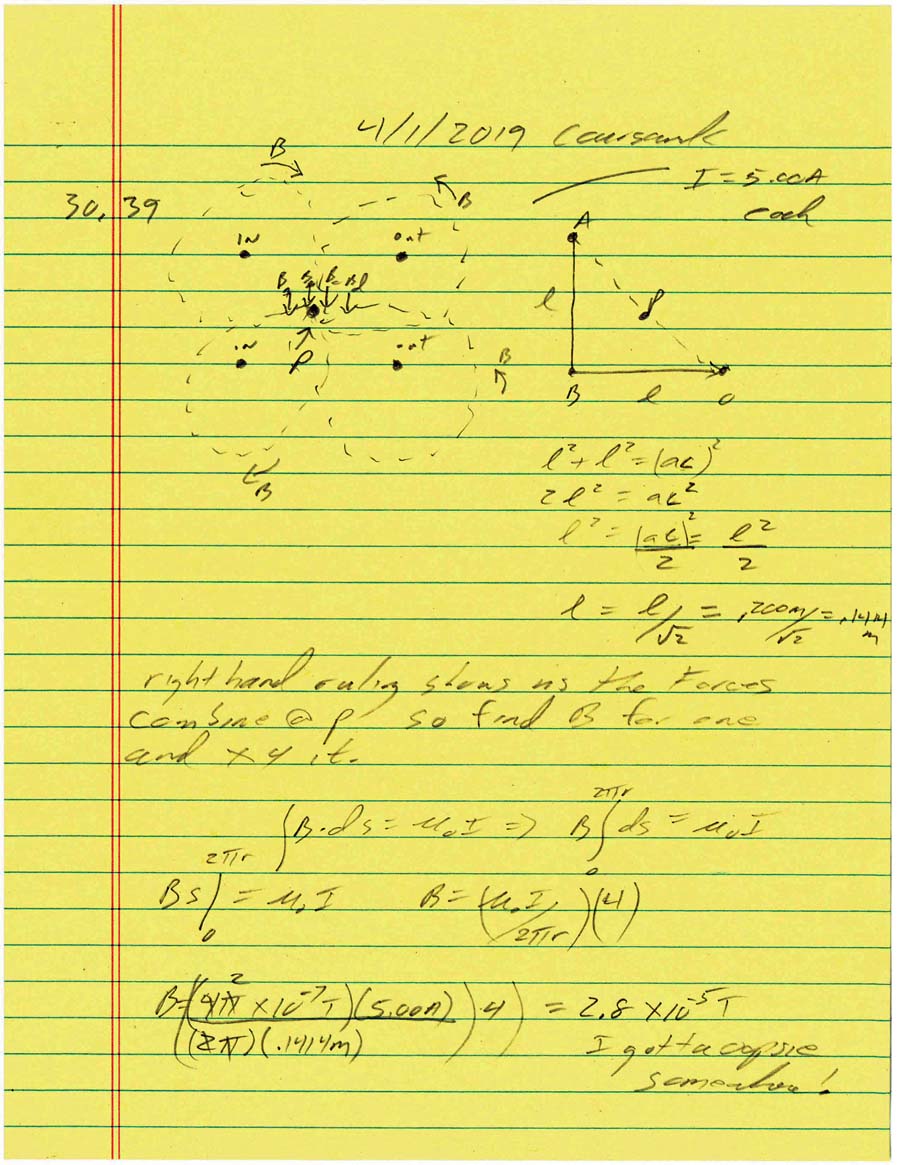 4/1/2019
I = 5.00A
each
30, 39
B
B
IN
out
A
B B B B
l
P
IN
out
P
B
B
l
B
l² + l² = (ac)²
2l² = ac²
l² = (ac)²/2 = l²/2
l = l/√2 = .200m/√2 = .1414 m
right hand ruling shows us the Forces
combine @ P so find B for one
and x 4 it.
∫B·ds = μ₀I ⇒ B∫₀^2πr ds = μ₀I
Bs|₀^2πr = μ₀I B = (μ₀I/2πr)(4)
B = ((4π x10⁻⁷ T)(5.00A)/(2π)(.1414m) · 4) = 2.8 x10⁻⁵ T
I gotta oopsie
somewhere!